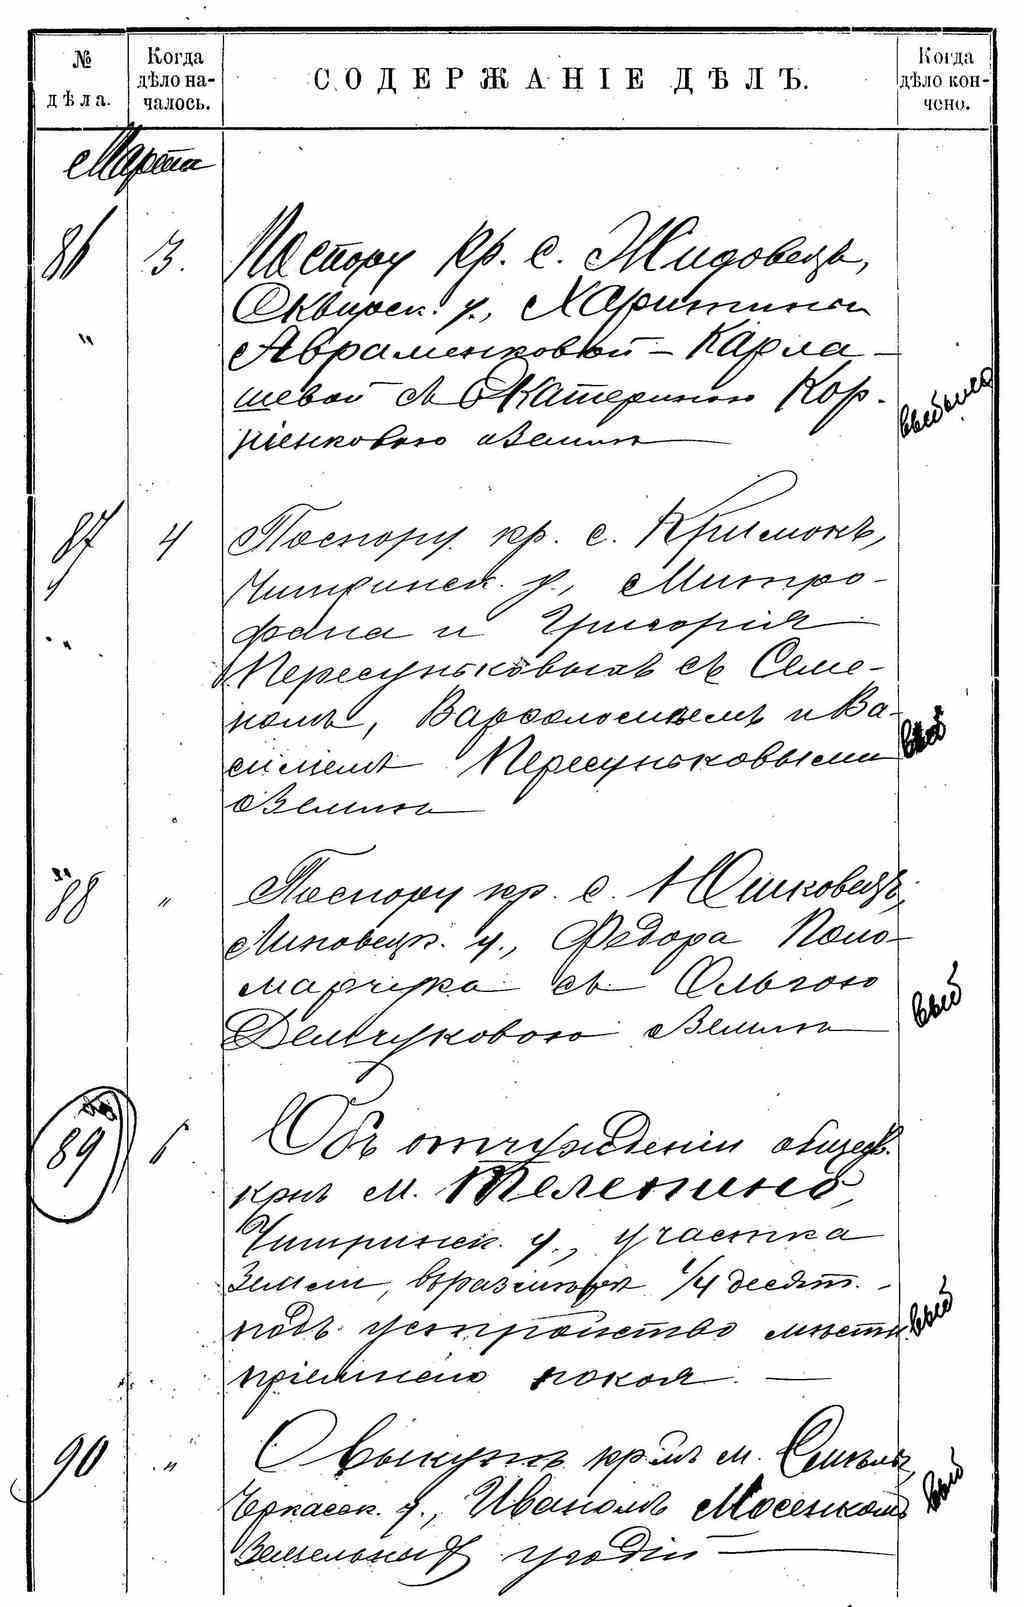 № дѣла.
Когда дѣло началось.
СОДЕРЖАНІЕ ДѢЛЪ.
Когда дѣло кончено.
Марта
86 3. По спору кр. с. Жидовецъ,
Сквирск. у., Харитины
" Авраменковой – Карла–
шевой съ Екатериною Кор-
ніенковою о землѣ
87 4 По спору кр. с. Кримокъ,
Чигиринск. у., Митро-
" фана и Григорія
Пересуньковыхъ съ Семе-
номъ, Варфоломеемъ и Ва-
силіемъ Пересуньковыми
о землѣ
88 " По спору кр. с. Юшковецъ,
Липовецк. у., Федора Поно-
марчука съ Ольгою
Демчуковою о землѣ
выб
89 6 Объ отчужденіи общеcтв.
крнъ м. Телепино,
Чигиринск. у., участка
земли, въ размѣрѣ 1/4 десят.
подъ устройство мѣстн
пріемнаго покоя. —
90 " О выкупѣ крмъ м. Смѣлы,
Черкасск. у., Иваномъ Мосенкомъ
земельныхъ угодій —